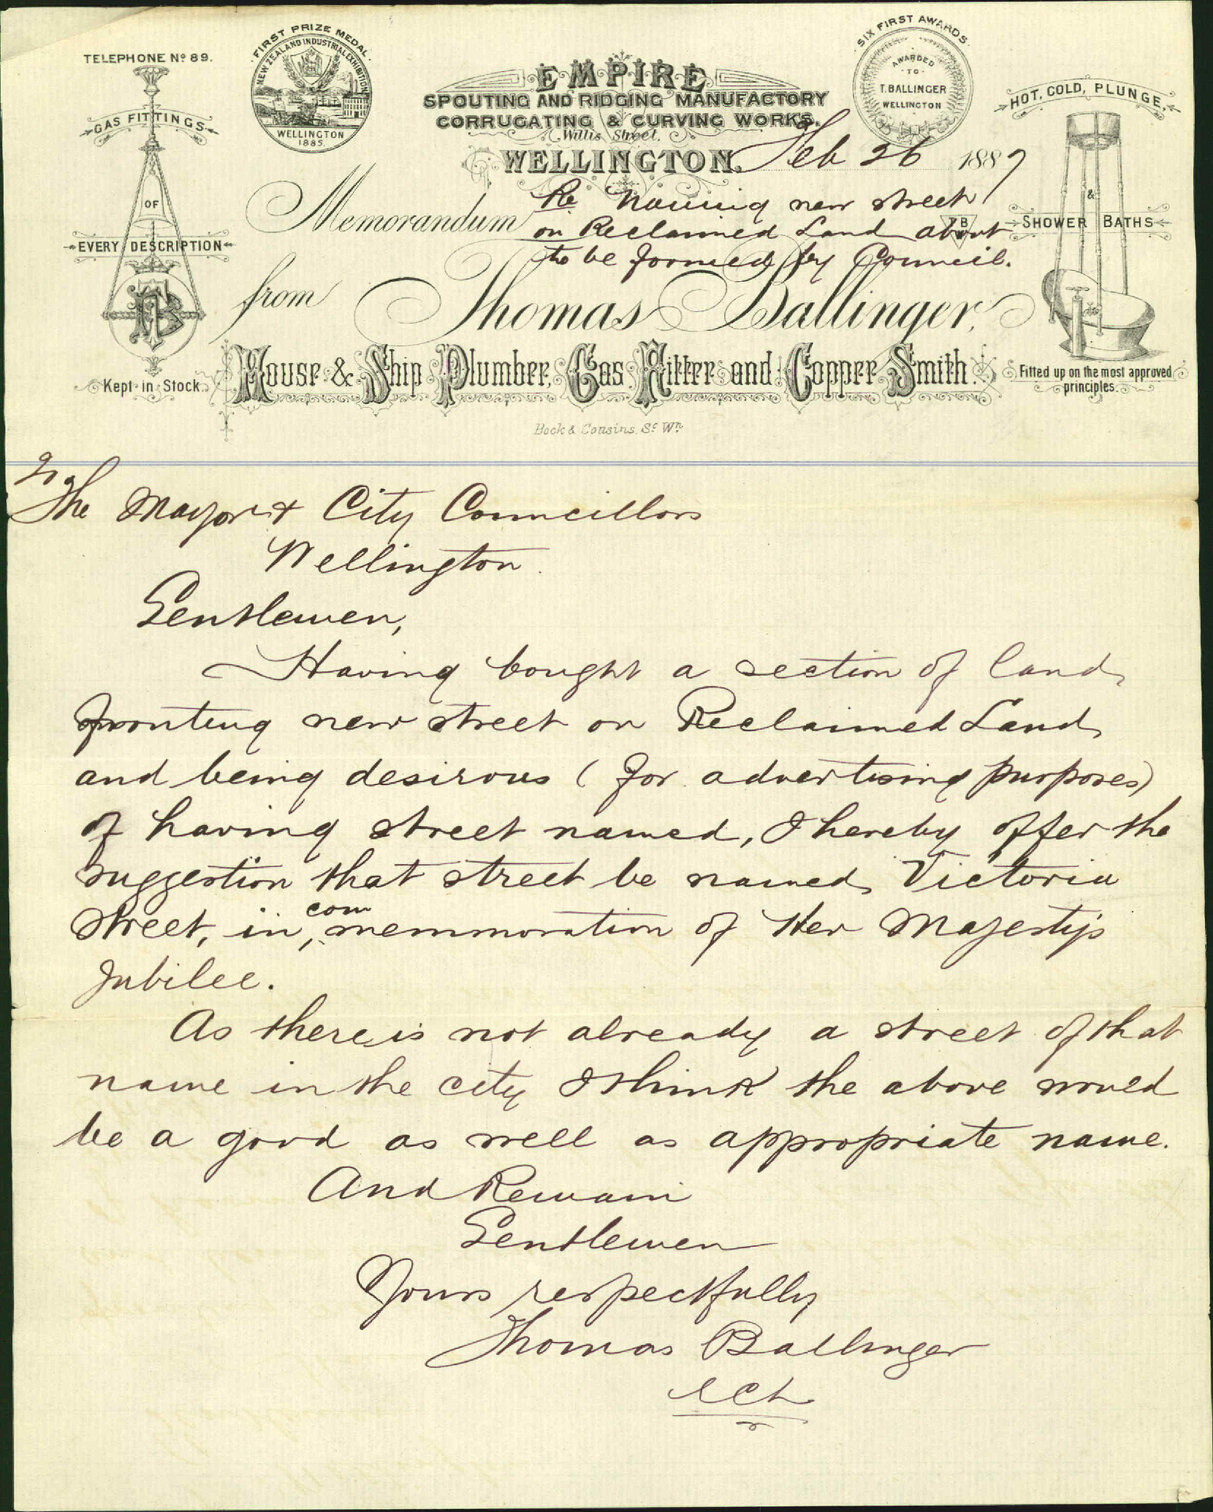 TELEPHONE Nº 89.
GAS FITTINGS
OF
EVERY DESCRIPTION
TB
Kept in Stock.
FIRST PRIZE MEDAL
NEW ZEALAND INDUSTRIAL EXHIBITION
WELLINGTON
1885
EMPIRE
SPOUTING AND RIDGING MANUFACTORY
CORRUGATING & CURVING WORKS.
Willis Street,
WELLINGTON. Feb 26 1887
SIX FIRST AWARDS
AWARDED
TO
T. BALLINGER
WELLINGTON
HOT, COLD, PLUNGE,
&
SHOWER BATHS
TB
Fitted up on the most approved
principles.
Memorandum
Re Naming new street
on Reclaimed Land about
to be formed by Council.
from Thomas Ballinger,
House & Ship Plumber, Gas Fitter and Copper Smith.
Bock & Cousins, Sc Wn
To
The Mayor & City Councillors
Wellington.
Gentlemen,
Having bought a section of land
fronting new street on Reclaimed Land,
and being desirous (for advertising purposes)
of having street named, I hereby offer the
suggestion that street be named Victoria
Street, in commemmoration of Her Majesty's
Jubilee.
As there is not already a street of that
name in the city I think the above would
be a good as well as appropriate name.
And Remain
Gentlemen
Yours respectfully
Thomas Ballinger